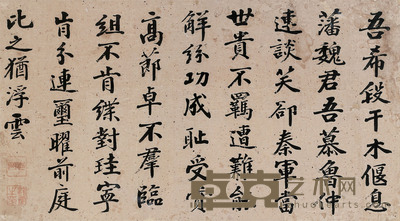 吾希段干木偃息
藩魏君吾慕魯仲
連談笑卻秦軍當
世貴不羈遭難能
解紛功成恥受賞
高莭卓不羣臨
組不肯緤對珪寧
肯分連璽曜前庭
比之猶浮雲